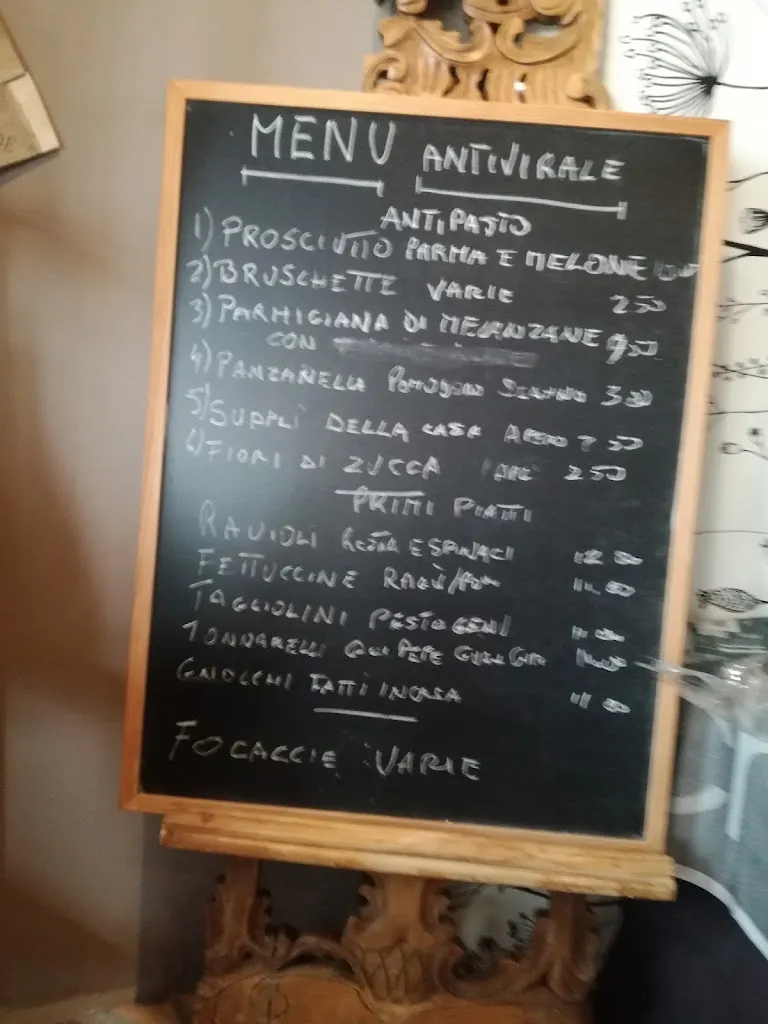 MENU ANTIVIRALE
ANTIPASTO
1) PROSCIUTTO PARMA E MELONE
2) BRUSCHETTE VARIE 250
3) PARMIGIANA DI MELANZANE 950
CON
4) PANZANELLA POMODORO
5) SUPPLÌ DELLA CASA
6) FIORI DI ZUCCA 250
PRIMI PIATTI
RAVIOLI RICOTTA E SPINACI 12.00
FETTUCCINE RAGÙ/
TAGLIOLINI PESTO GEN/
TONNARELLI PEPE
GNOCCHI FATTI IN CASA 11 00
FOCACCIE VARIE